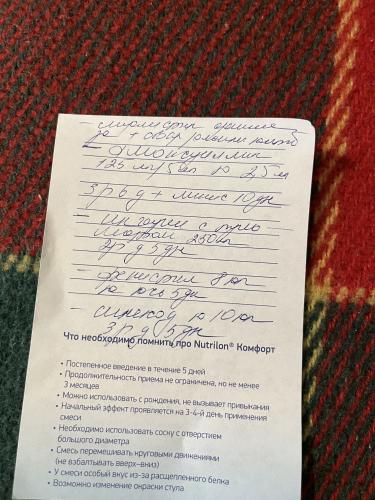 - мирамистин орошение
за + отвар ромашки
- амоксициллин
125 мг/5мл по 2,5 мл
3 р в д + линекс 10 дн
- ингаляции с
250 мл
2 р д 5 дн
- фенистил 8 кап
на ночь 5 дн
- синекод по 10 кап
3 р д 5 дн
Что необходимо помнить про Nutrilon® Комфорт
• Постепенное введение в течение 5 дней
• Продолжительность приема не ограничена, но не менее
3 месяцев
• Можно использовать с рождения, не вызывает привыкания
• Начальный эффект проявляется на 3-4-й день применения
смеси
• Необходимо использовать соску с отверстием
большого диаметра
• Смесь перемешивать круговыми движениями
(не взбалтывать вверх–вниз)
• У смеси особый вкус из-за расщепленного белка
• Возможно изменение окраски стула